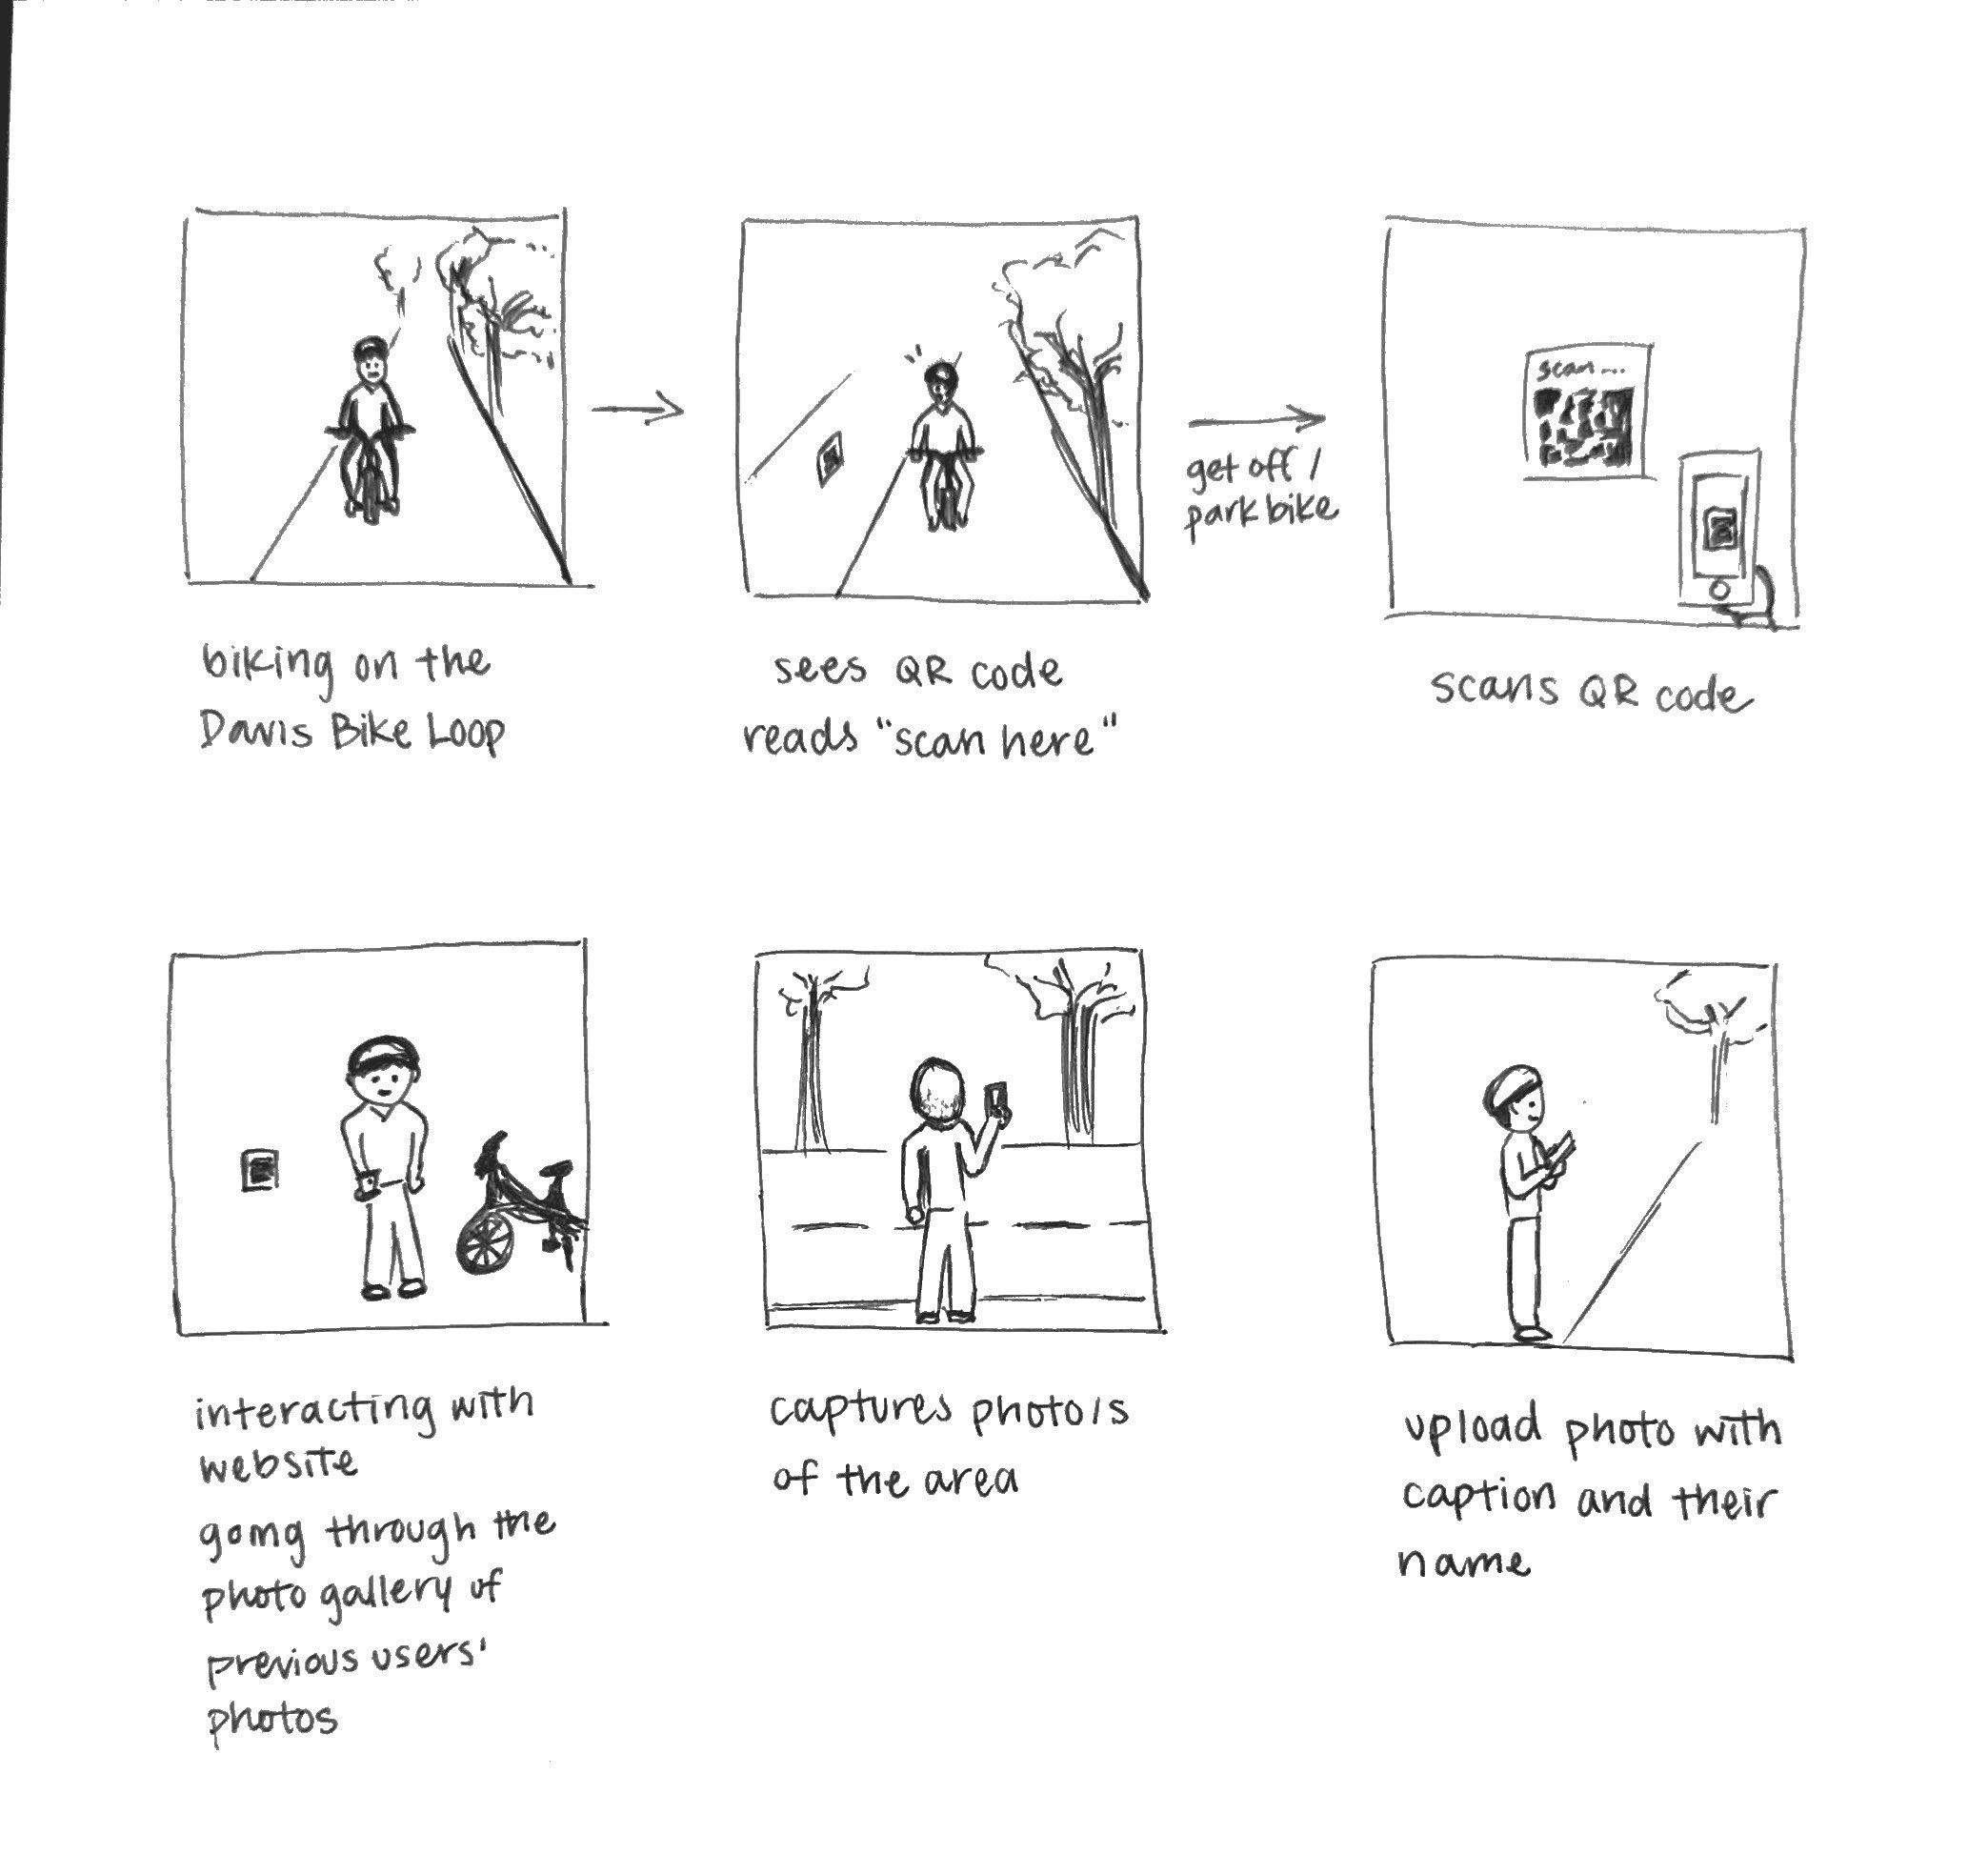 biking on the
Davis Bike Loop
sees QR code
reads "scan here"
get off /
park bike
scan...
scans QR code
interacting with
website
going through the
photo gallery of
previous users'
photos
captures photo/s
of the area
upload photo with
caption and their
name